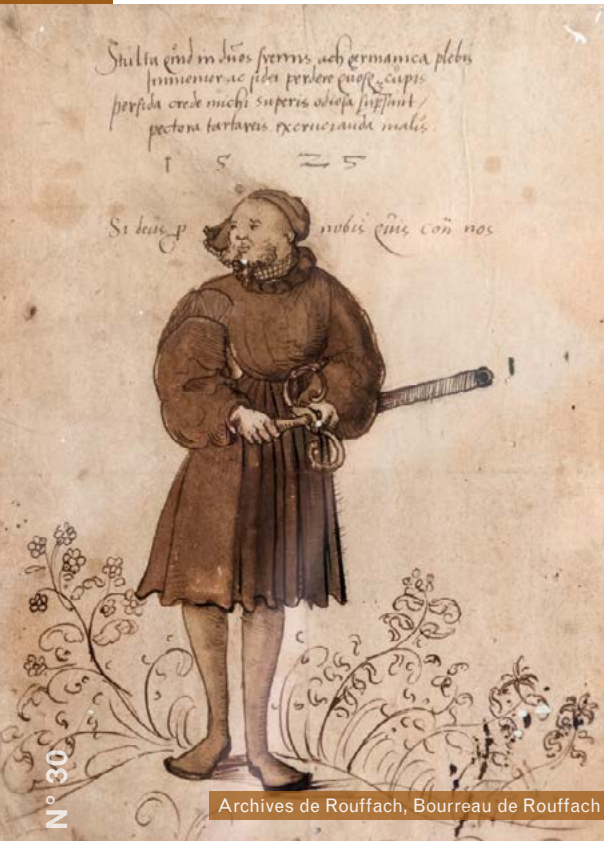 Stulta in dños ach germanica plebis
Immemor ac fidei perdere cupis
perfida crede michi superis odiosa /
pectora tartareis excrucianda malis.
1 5 2 5
Si deus p nobis quis con̄ nos
N° 30
Archives de Rouffach, Bourreau de Rouffach